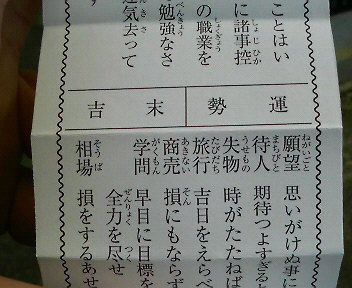 ことはい
に諸事控
の職業を
勉強なさ
運気去って
す
運勢 末吉
願望 思いがけぬ事に
待人 期待つよすぎると
失物 時がたたねば
旅行 吉日をえらべ
商売 損にもならず
学問 早目に目標を
全力を尽せ
相場 損をするあせ